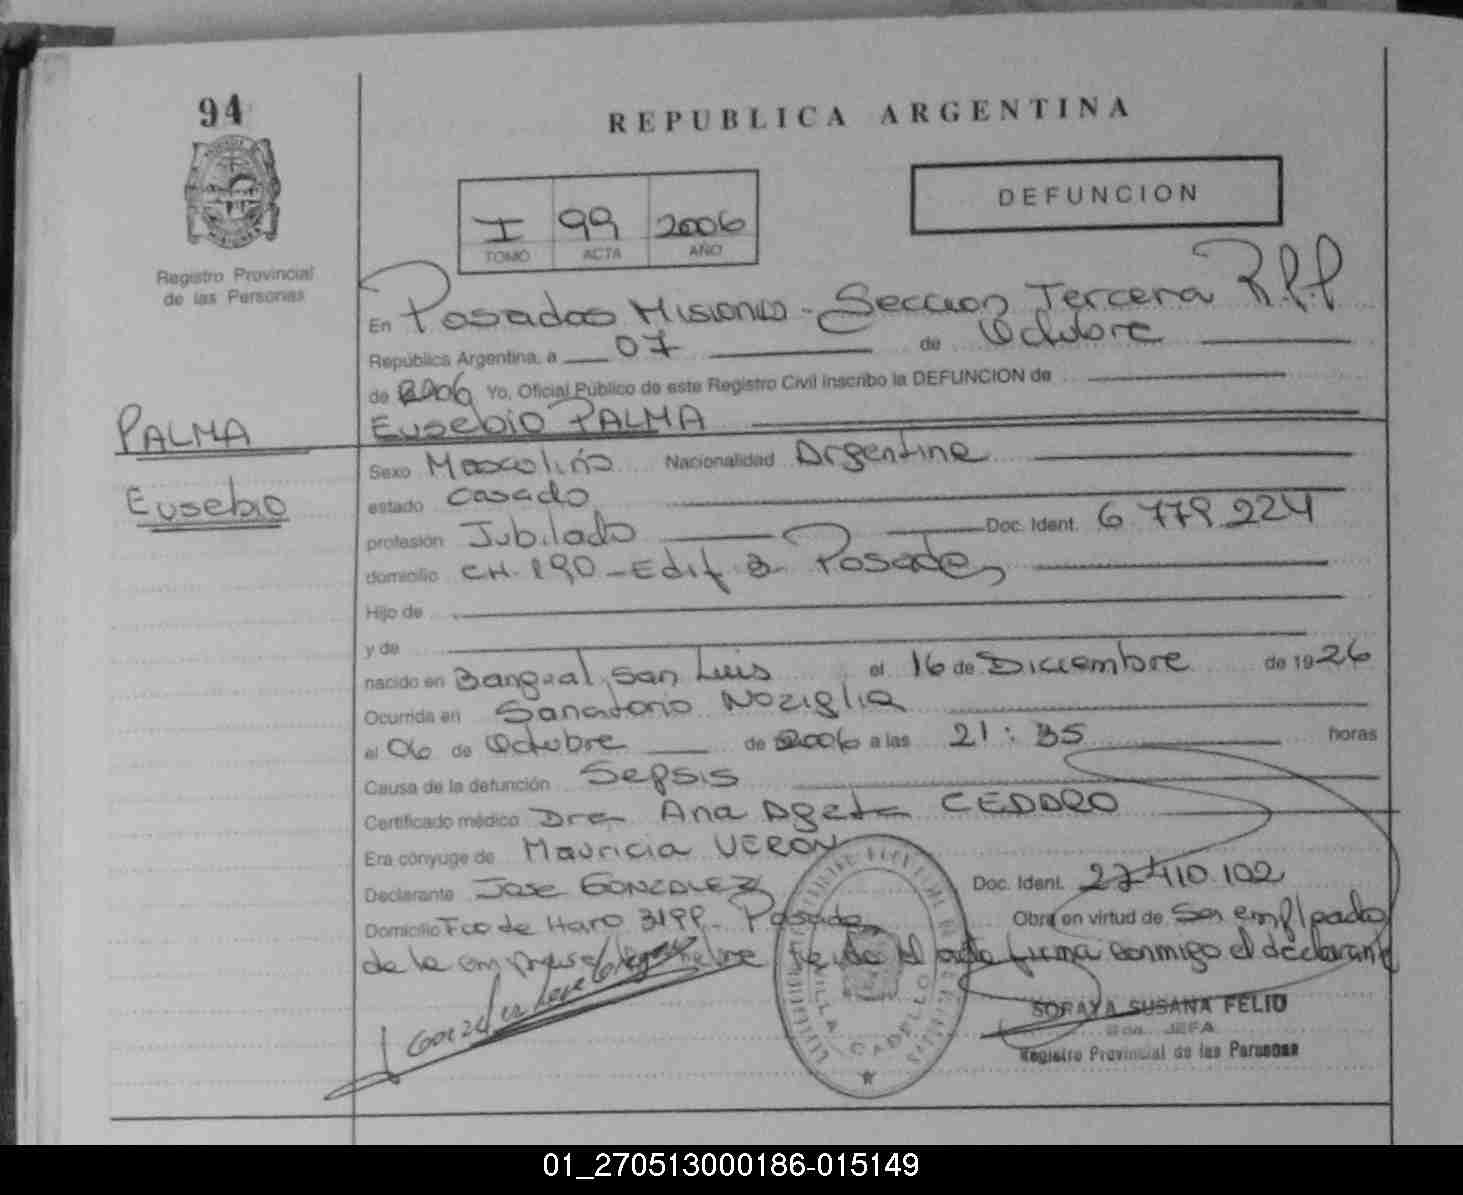 94
REPUBLICA ARGENTINA
DEFUNCION
I 99 2006
TOMO ACTA AÑO
Registro Provincial
de las Personas
En Posadas Misiones - Seccion Tercera R.P.P
República Argentina, a 07 de Octubre
de 2006 Yo, Oficial Público de este Registro Civil inscribo la DEFUNCION de
PALMA
Eusebio
Eusebio PALMA
Sexo Masculino Nacionalidad Argentina
estado casado
profesión Jubilado Doc. Ident. 6.779.224
domicilio CH. 190 - Edif 3 - Posadas
Hijo de
y de
nacido en San Luis el 16 de Diciembre de 1926
Ocurrida en Sanatorio Noziglia
el 06 de Octubre de 2006 a las 21:35 horas
Causa de la defunción Sepsis
Certificado médico Dra Ana CEDARO
Era cónyuge de Mauricia VERON
Declarante Jose GONZALEZ Doc. Ident. 27.410.102
Domicilio Fco de Haro 3199 - Posadas Obra en virtud de Ser empleado
de la empresa el acta firma conmigo el declarante
VILLA CABELLO
SORAYA SUSANA FELIU
JEFA
Registro Provincial de las Personas
01_270513000186-015149